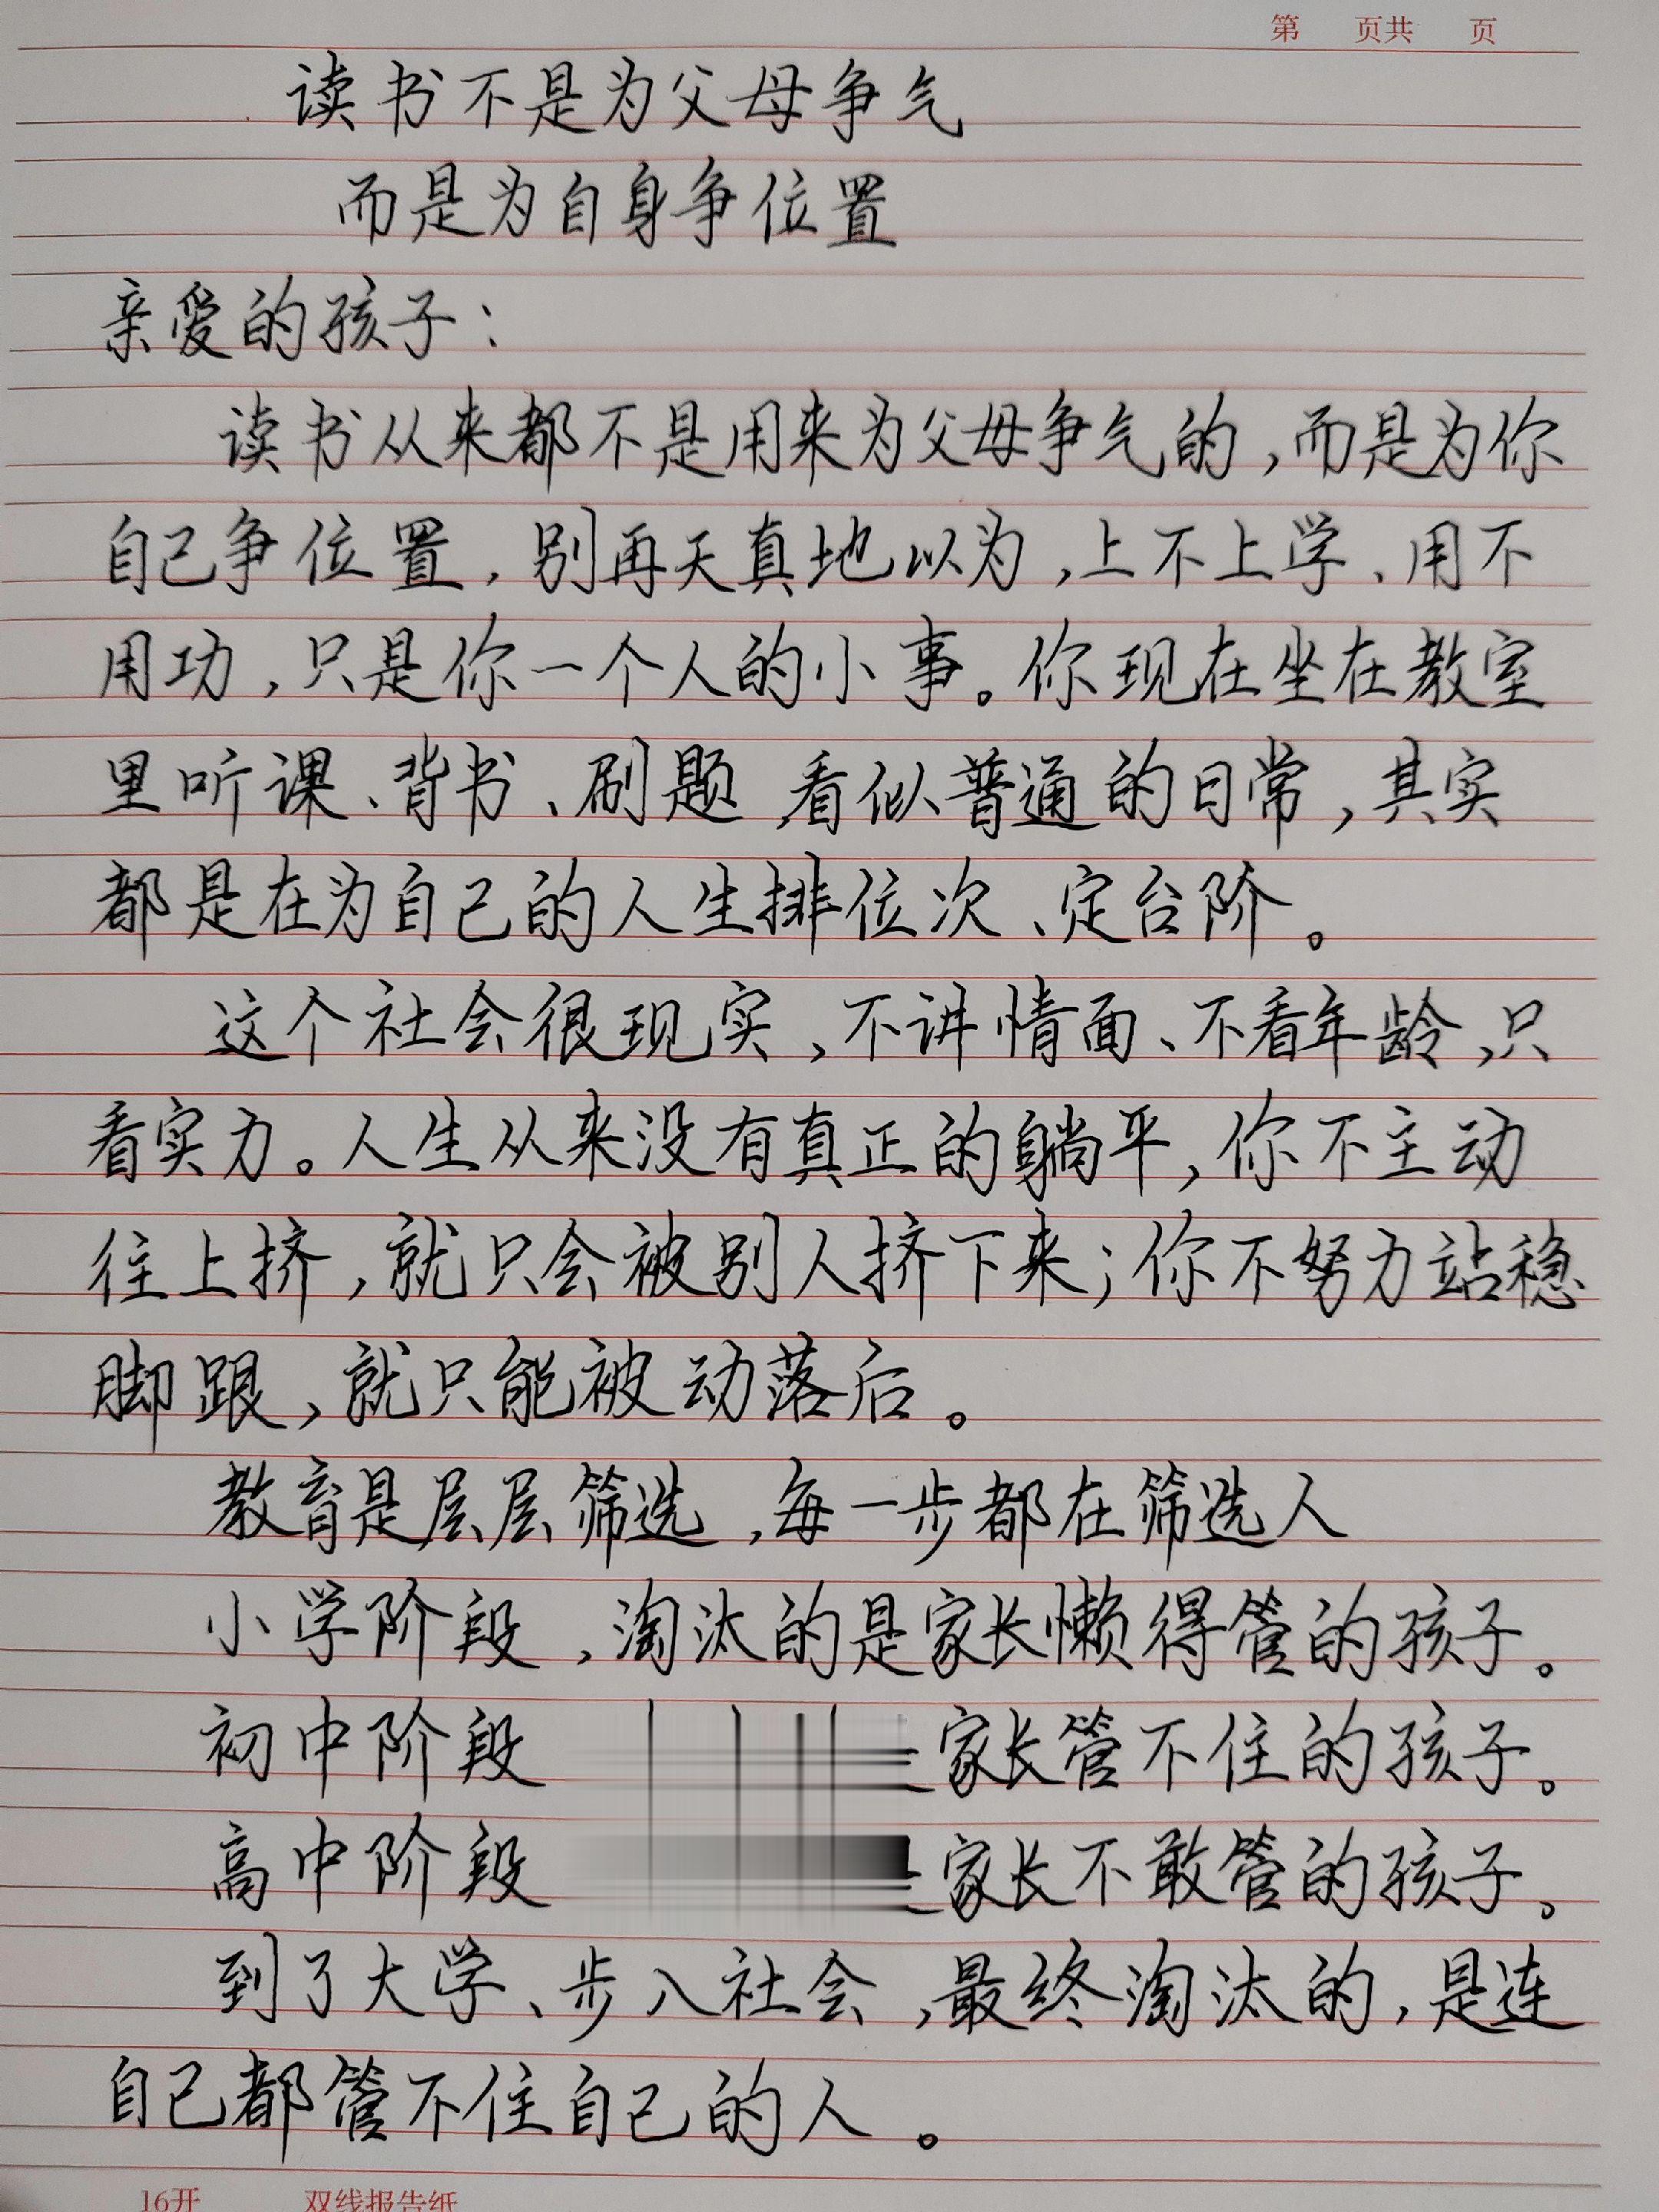 第 页共 页
读书不是为父母争气
而是为自身争位置
亲爱的孩子：
读书从来都不是用来为父母争气的，而是为你
自己争位置，别再天真地以为，上不上学、用不
用功，只是你一个人的小事。你现在坐在教室
里听课、背书、刷题，看似普通的日常，其实
都是在为自己的人生排位次、定台阶。
这个社会很现实，不讲情面、不看年龄，只
看实力。人生从来没有真正的躺平，你不主动
往上挤，就只会被别人挤下来；你不努力站稳
脚跟，就只能被动落后。
教育是层层筛选，每一步都在筛选人
小学阶段，淘汰的是家长懒得管的孩子。
初中阶段 家长管不住的孩子。
高中阶段 家长不敢管的孩子。
到了大学、步入社会，最终淘汰的，是连
自己都管不住自己的人。
16开 双线报告纸